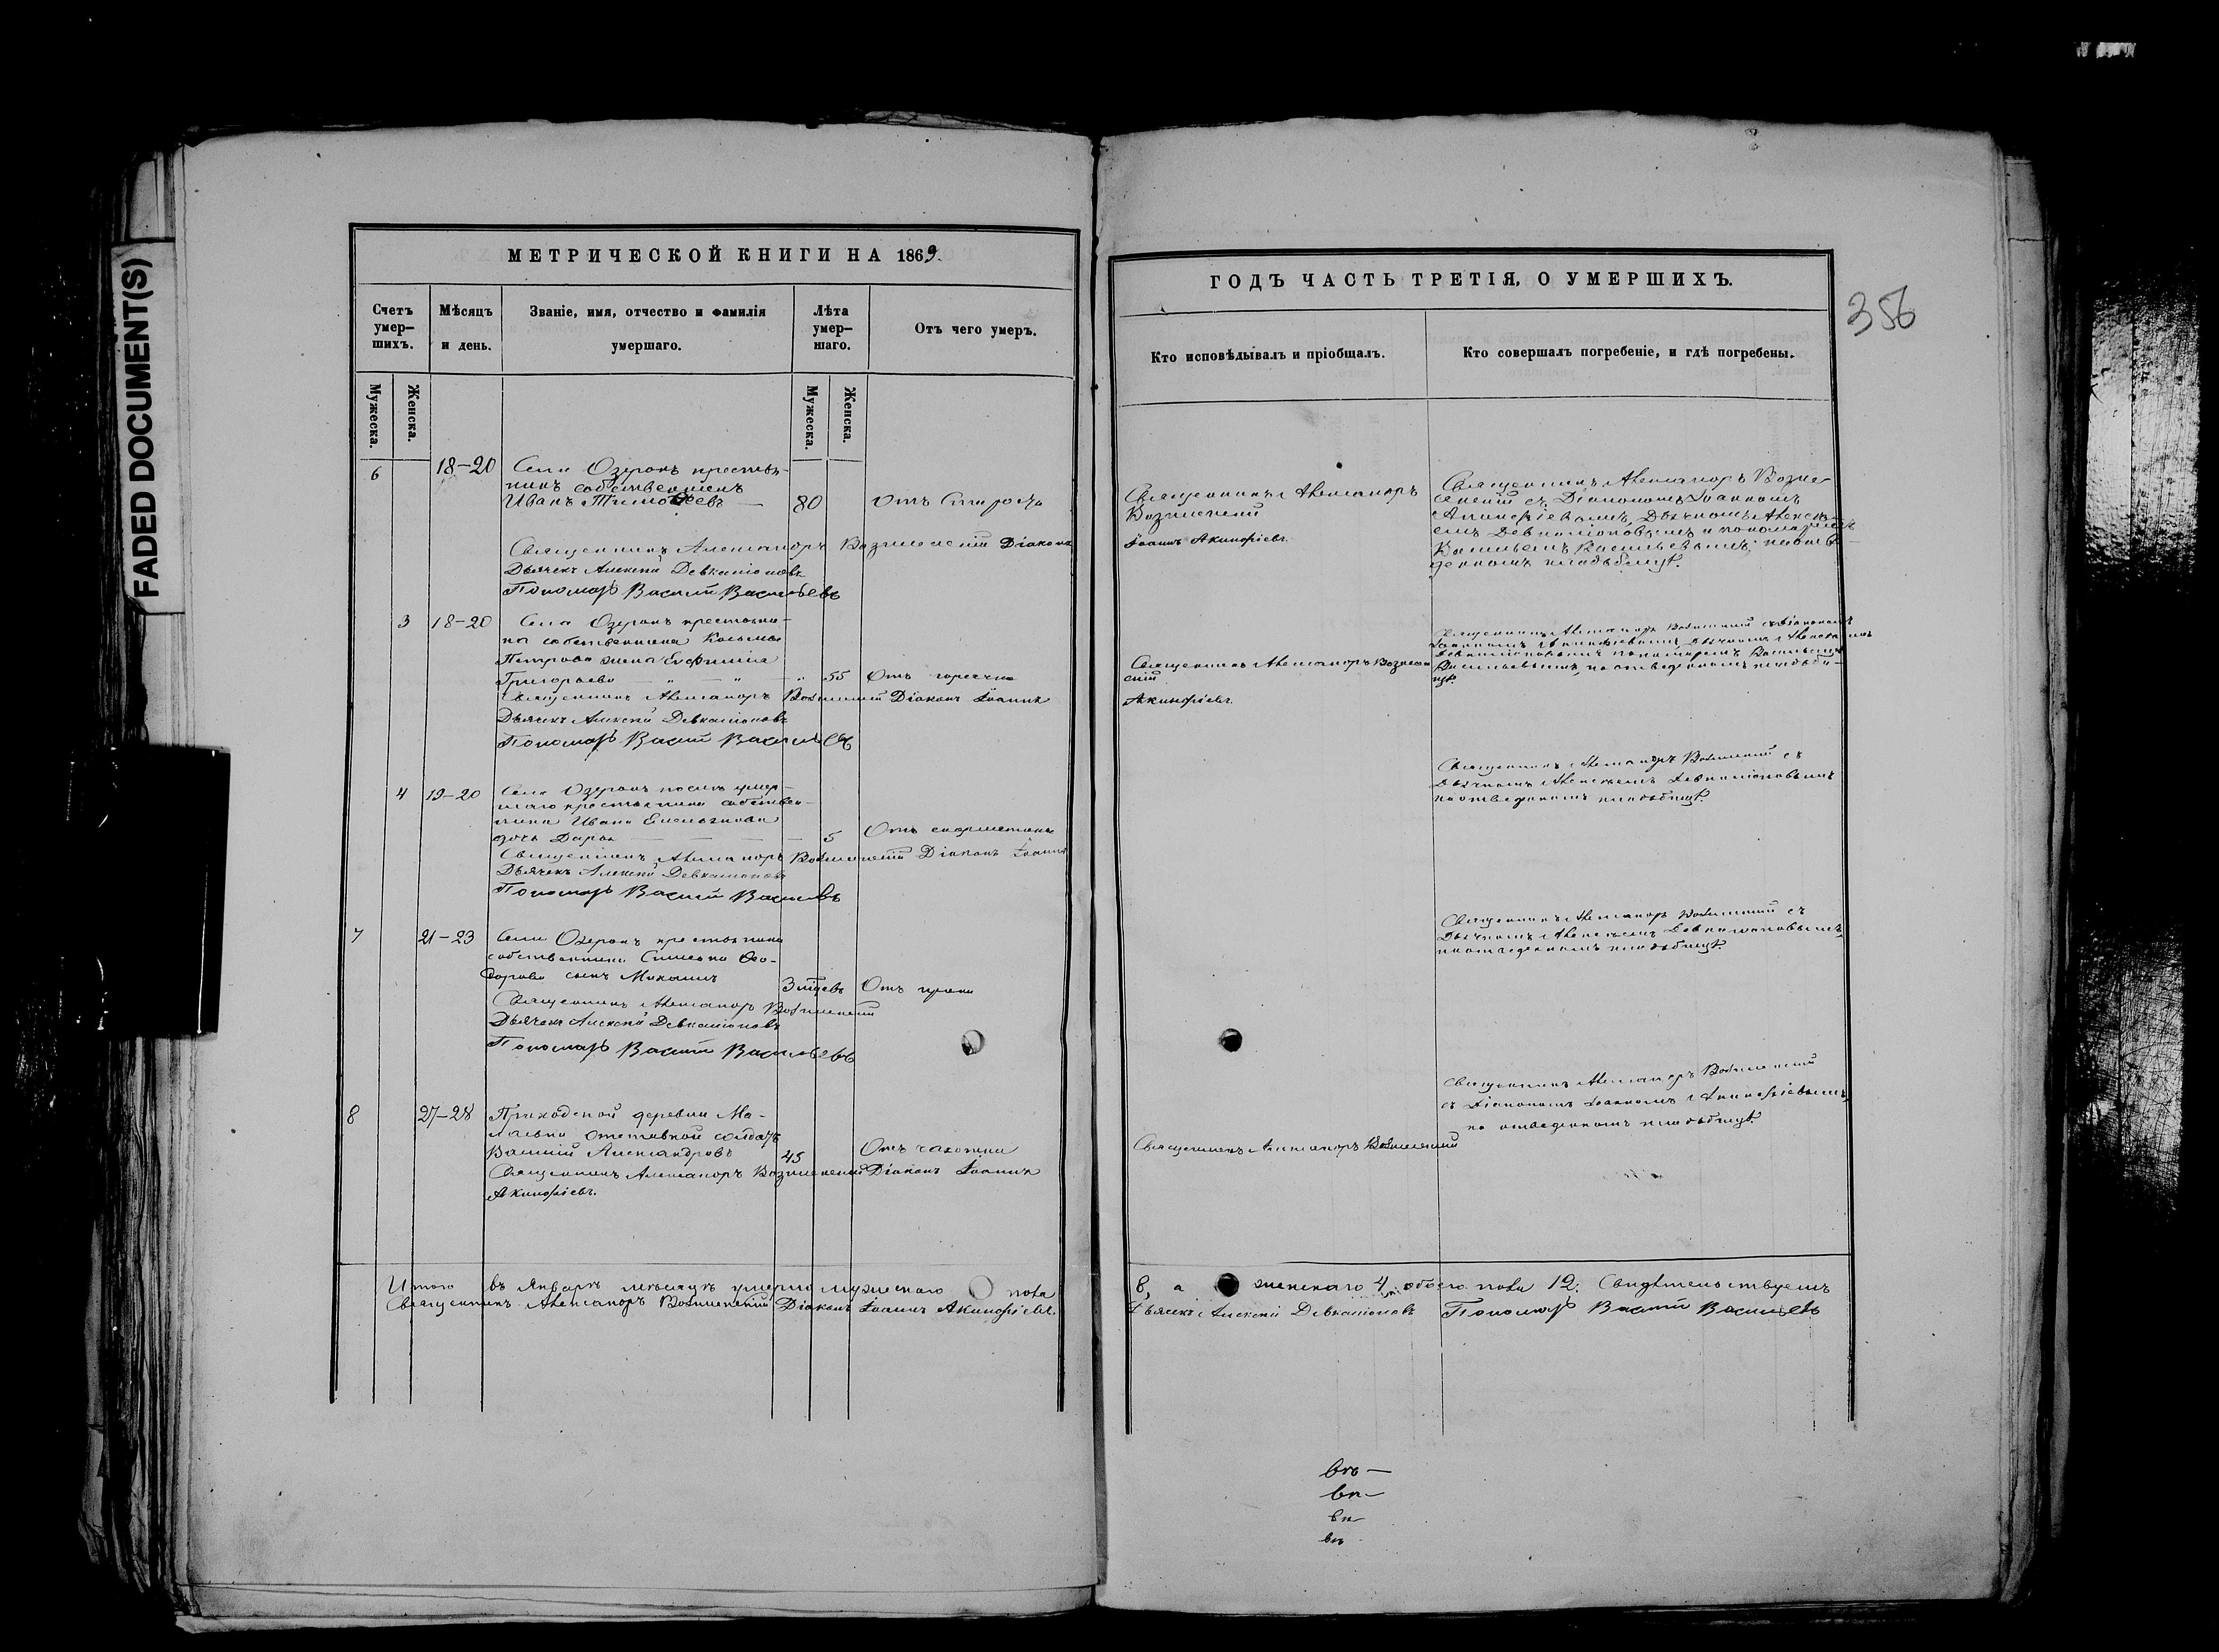 FADED DOCUMENT(S)
МЕТРИЧЕСКОЙ КНИГИ НА 1869.
Счетъ умерших.
Мѣсяцъ и день.
Званіе, имя, отчество и фамилія умершаго.
Лѣта умершаго.
Отъ чего умеръ.
Мужеска.
Женска.
Мужеска.
Женска.
6 18-20 Села Озерокъ крестья-
нинъ собственникъ
Иванъ Тимоѳеевъ — 80 Отъ старости
Священникъ Александръ Вознесенскій Діаконъ
Дьячекъ Алексѣй Девкаліоновъ
Пономарь Василій Васильевъ
3 18-20 Села Озерокъ крестьяни-
на собственника Косьмы
Петрова жена Евфимія
Григорьева — " — " — " 55 Отъ горячки
Священникъ Александръ Вознесенскій Діаконъ Іоаннъ
Дьячекъ Алексѣй Девкаліоновъ
Пономарь Василій Васильевъ
4 19-20 Села Озерокъ послѣ умер-
шаго крестьянина собствен-
ника Ивана
дочь Дарья — 5 Отъ скарлатины
Священникъ Александръ Вознесенскій Діаконъ Іоаннъ
Дьячекъ Алексѣй Девкаліоновъ
Пономарь Василій Васильевъ
7 21-23 Села Озерокъ крестьянина
собственника Ѳео-
дорова сынъ 3 Отъ
Священникъ Александръ Вознесенскій
Дьячекъ Алексѣй Девкаліоновъ
Пономарь Василій Васильевъ
8 27-28 Приходской деревни
отставной солдатъ
Василій Александровъ 45 Отъ чахотки
Священникъ Александръ Вознесенскій Діаконъ Іоаннъ
Акинфіевъ.
Итого въ Январѣ мѣсяцѣ умерло мужескаго пола
Священникъ Александръ Вознесенскій Діаконъ Іоаннъ Акинфіевъ.
ГОДЪ ЧАСТЬ ТРЕТІЯ, О УМЕРШИХЪ.
356
Кто исповѣдывалъ и пріобщалъ.
Кто совершалъ погребеніе, и гдѣ погребены.
Священникъ Александръ
Вознесенскій
Іоаннъ Акинфіевъ.
Священникъ Александръ Возне-
сенскій съ Діакономъ Іоанномъ
Акинфіевымъ, Дьячкомъ Алексѣ-
емъ Девкаліоновымъ и пономаремъ
Васильемъ Васильевымъ, на отве-
денномъ кладбищѣ.
Священникъ Александръ Вознесен-
скій
Акинфіевъ.
Священникъ Александръ Вознесенскій съ Діакономъ
Іоанномъ Акинфіевымъ, Дьячкомъ Алексѣемъ
Девкаліоновымъ, пономаремъ Васильемъ
Васильевымъ, на отведенномъ кладби-
щѣ.
Священникъ Александръ Вознесенскій съ
Дьячкомъ Алексѣемъ Девкаліоновымъ
на отведенномъ кладбищѣ.
Священникъ Александръ Вознесенскій съ
Дьячкомъ Алексѣемъ Девкаліоновымъ,
на отведенномъ кладбищѣ.
Священникъ Александръ Вознесенскій
Священникъ Александръ Вознесенскій
съ Діакономъ Іоанномъ Акинфіевымъ,
на отведенномъ кладбищѣ.
8, а женскаго 4, обоего пола 12. Свидѣтельствуемъ
Дьячекъ Алексѣй Девкаліоновъ Пономарь Василій Васильевъ